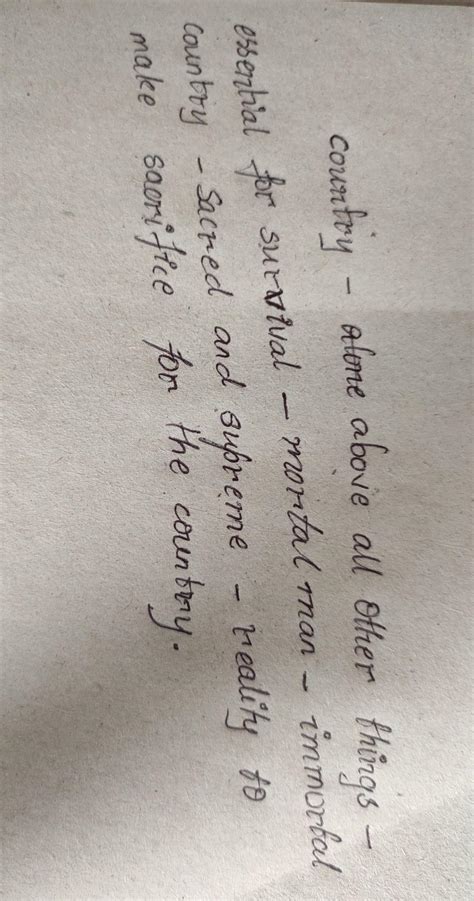 country - alone above all other things -
essential for survival - mortal man - immortal
country - sacred and supreme - reality to
make sacrifice for the country.